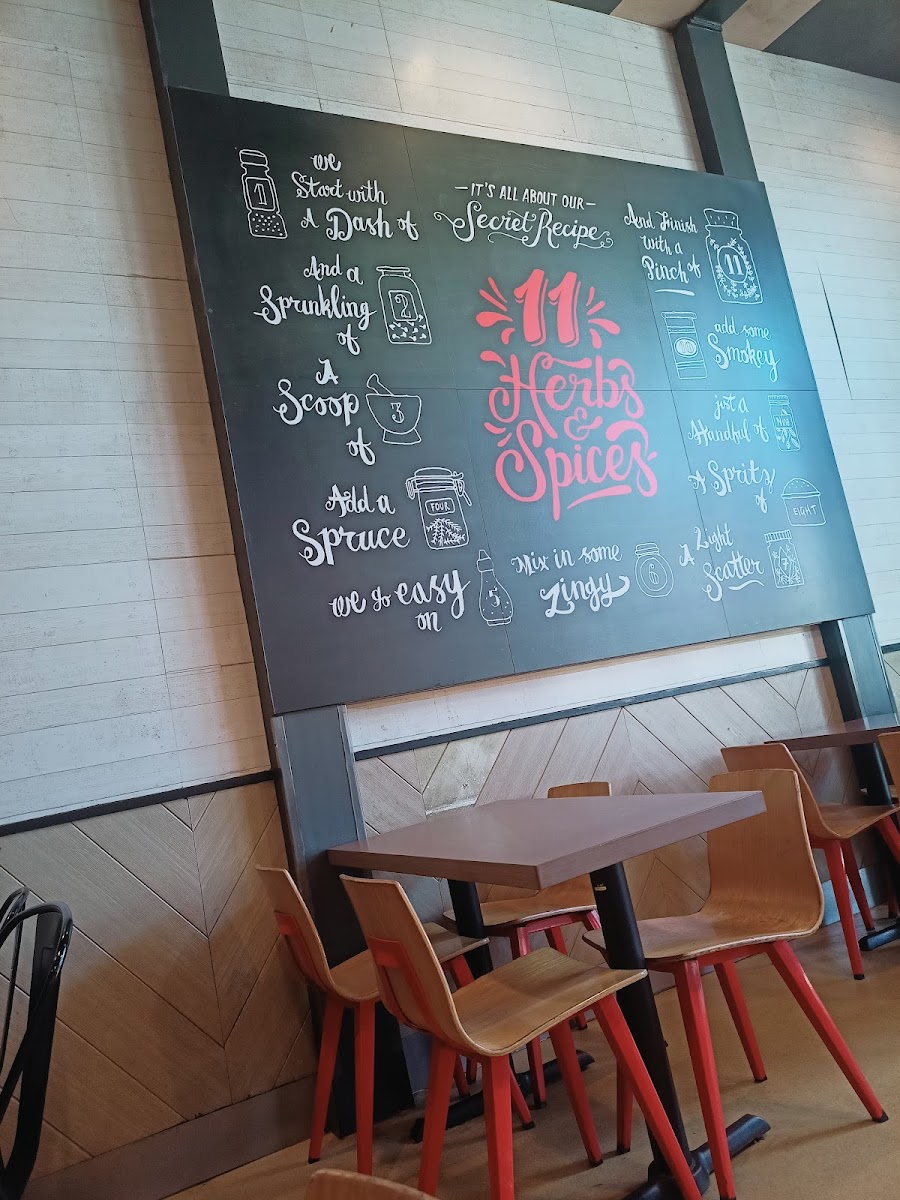 IT'S ALL ABOUT OUR
Secret Recipe
11
Herbs
&
Spices
we
Start with
A Dash of
1
And a
Sprinkling
of
2
A
Scoop
of
3
Add a
Spruce
FOUR
we go easy
on
5
Mix in some
Zingy
6
A Light
Scatter
7
A Spritz
of
EIGHT
just a
Handful of
No9
add some
Smokey
10
And Finish
with a
Pinch of
11